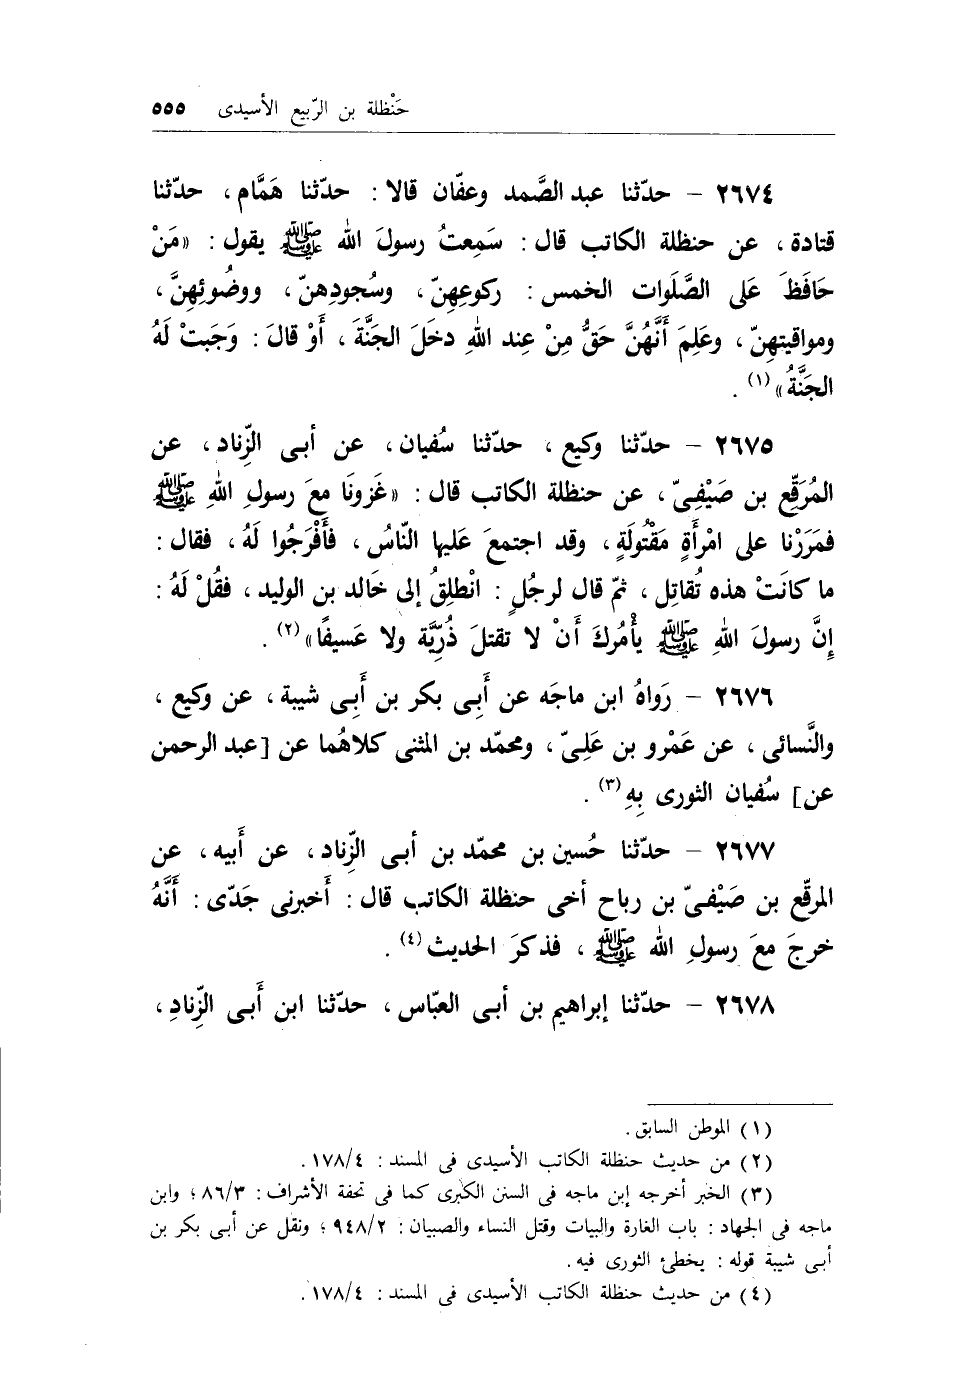 حَنْظلة بن الرّبيع الأسيدى ٥٥٥
٢٦٧٤ – حدّثنا عبد الصَّمد وعفّان قالا : حدّثنا هَمَّام ، حدّثنا
قتادة ، عن حنظلة الكاتب قال : سَمِعتُ رسولَ الله ﷺ يقول : «مَنْ
حَافَظَ عَلى الصَّلَوات الخمس : ركوعِهِنّ ، وسُجودِهنّ ، ووضُوئِهِنَّ ،
ومواقيتهِنّ ، وعَلِمَ أَنَّهُنَّ حَقٌّ مِنْ عِند اللهِ دخَلَ الجَنَّةَ ، أَوْ قالَ : وَجَبتْ لَهُ
الجَنَّةُ» (١) .
٢٦٧٥ – حدّثنا وكيع ، حدّثنا سُفيان ، عن أبى الزّناد ، عن
المُرَقّعِ بن صَيْفِىّ ، عن حنظلة الكاتب قال : «غَزونَا معَ رسولِ اللهِ ﷺ
فمَرَرْنا على امْرأَةٍ مَقْتُولَةٍ ، وقد اجتمعَ عَليها النّاسُ ، فأَفْرَجُوا لَهُ ، فقال :
ما كانَتْ هذه تُقاتِل ، ثمّ قال لرجُلٍ : انْطلِقُ إلى خَالد بن الوليد ، فقُلْ لَهُ :
إِنَّ رسولَ اللهِ ﷺ يأْمُركَ أَنْ لا تقتلَ ذُرِّيَّة ولا عَسيفًا» (٢) .
٢٦٧٦ – رَواهُ ابن ماجَه عن أَبِى بكر بن أَبِى شيبة ، عن وكيع ،
والنَّسائى ، عن عَمْرو بن عَلِىّ ، ومحمّد بن المثنى كلاهُما عن [عبد الرحمن
عن] سُفيان الثورى بِهِ (٣) .
٢٦٧٧ – حدّثنا حُسين بن محمّد بن أبى الزّناد ، عن أبيه ، عن
المرقّع بن صَيْفىّ بن رباح أخى حنظلة الكاتب قال : أَخبرنى جَدّى : أَنَّهُ
خرجَ معَ رسولِ الله ﷺ ، فذكرَ الحديث (٤) .
٢٦٧٨ – حدّثنا إبراهيم بن أبى العبّاس ، حدّثنا ابن أَبى الزّنادِ ،
(١) الموطن السابق .
(٢) من حديث حنظلة الكاتب الأسيدى فى المسند : ١٧٨/٤ .
(٣) الخبر أخرجه إبن ماجه فى السنن الكبرى كما فى تحفة الأشراف : ٨٦/٣ ؛ وابن
ماجه فى الجهاد : باب الغارة والبيات وقتل النساء والصبيان : ٩٤٨/٢ ؛ ونقل عن أبى بكر بن
أبى شيبة قوله : يخطئ الثورى فيه .
(٤) من حديث حنظلة الكاتب الأسيدى فى المسند : ١٧٨/٤ .